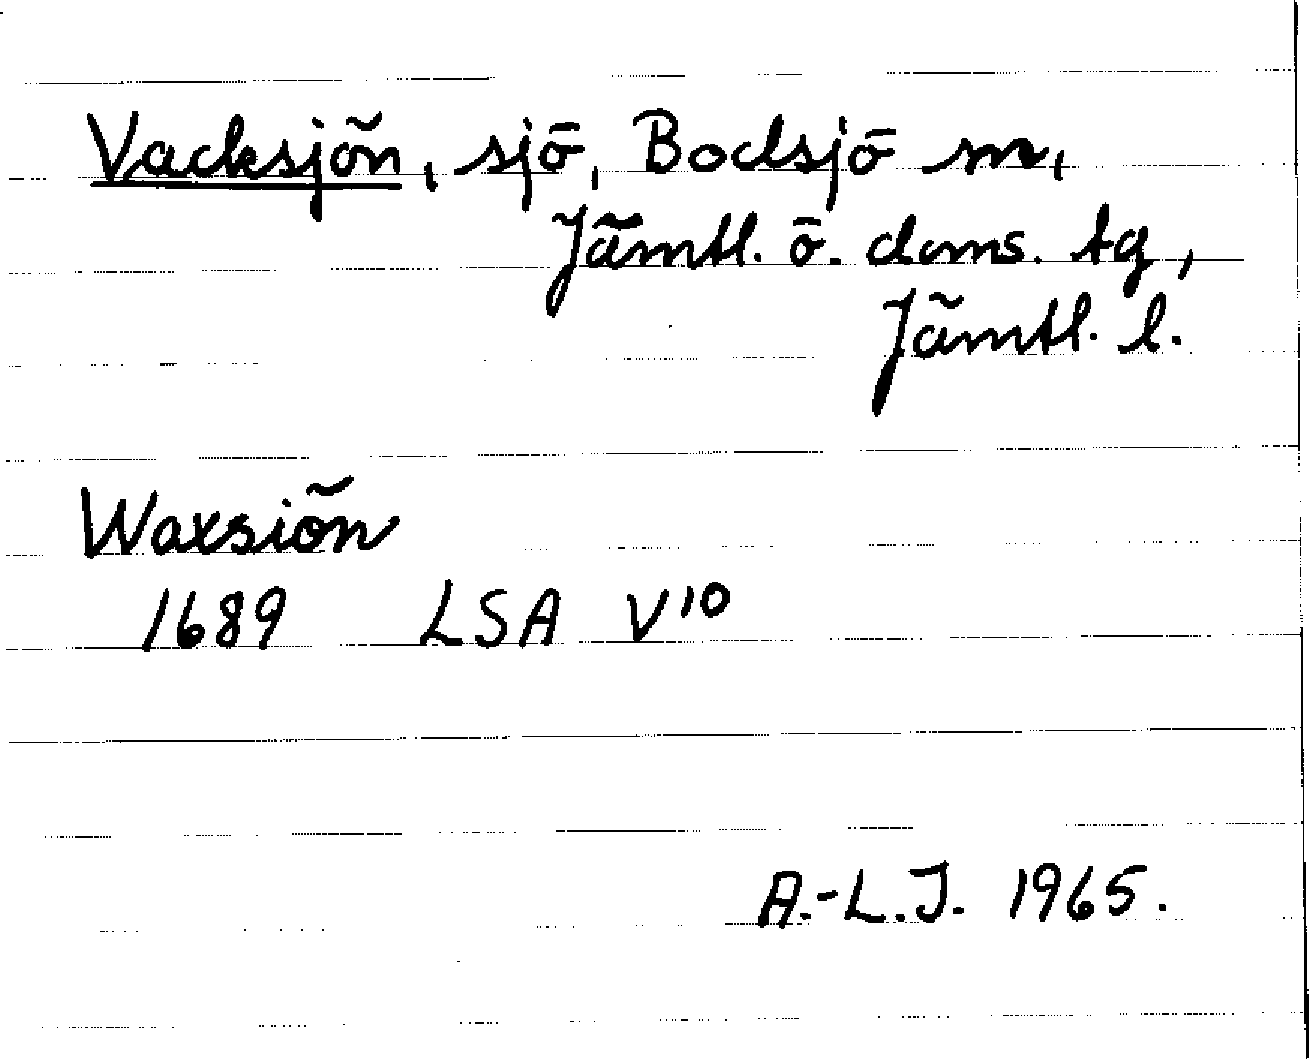 Vacksjön, sjö, Bodsjö sn,
Jämtl. ö. doms. tg,
Jämtl. l.
Waxsiön
1689 LSA V10
A.-L.J. 1965.